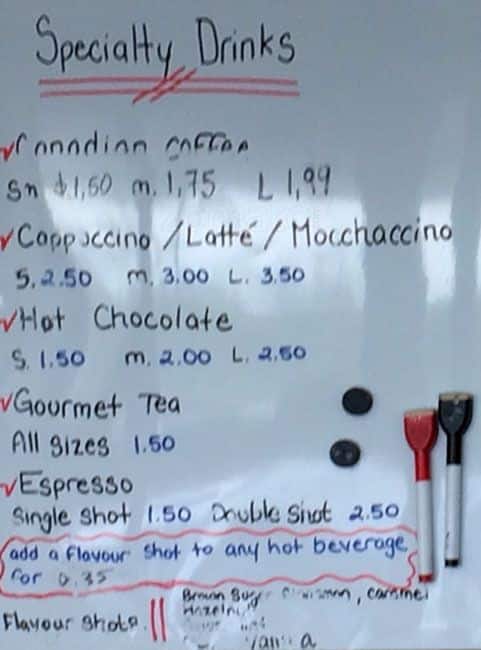 Specialty Drinks
Canadian coffee
Sm $1,50 m. 1,75 L 1,99
Cappuccino / Latté / Mocchaccino
S. 2.50 m. 3.00 L. 3.50
Hot Chocolate
S. 1.50 m. 2.00 L. 2.50
Gourmet Tea
All Sizes 1.50
Espresso
Single Shot 1.50 Double Shot 2.50
add a flavour shot to any hot beverage
for 0.35
Brown Sugar Cinnamon, caramel
Flavour Shots. Hazelnut
Vanilla